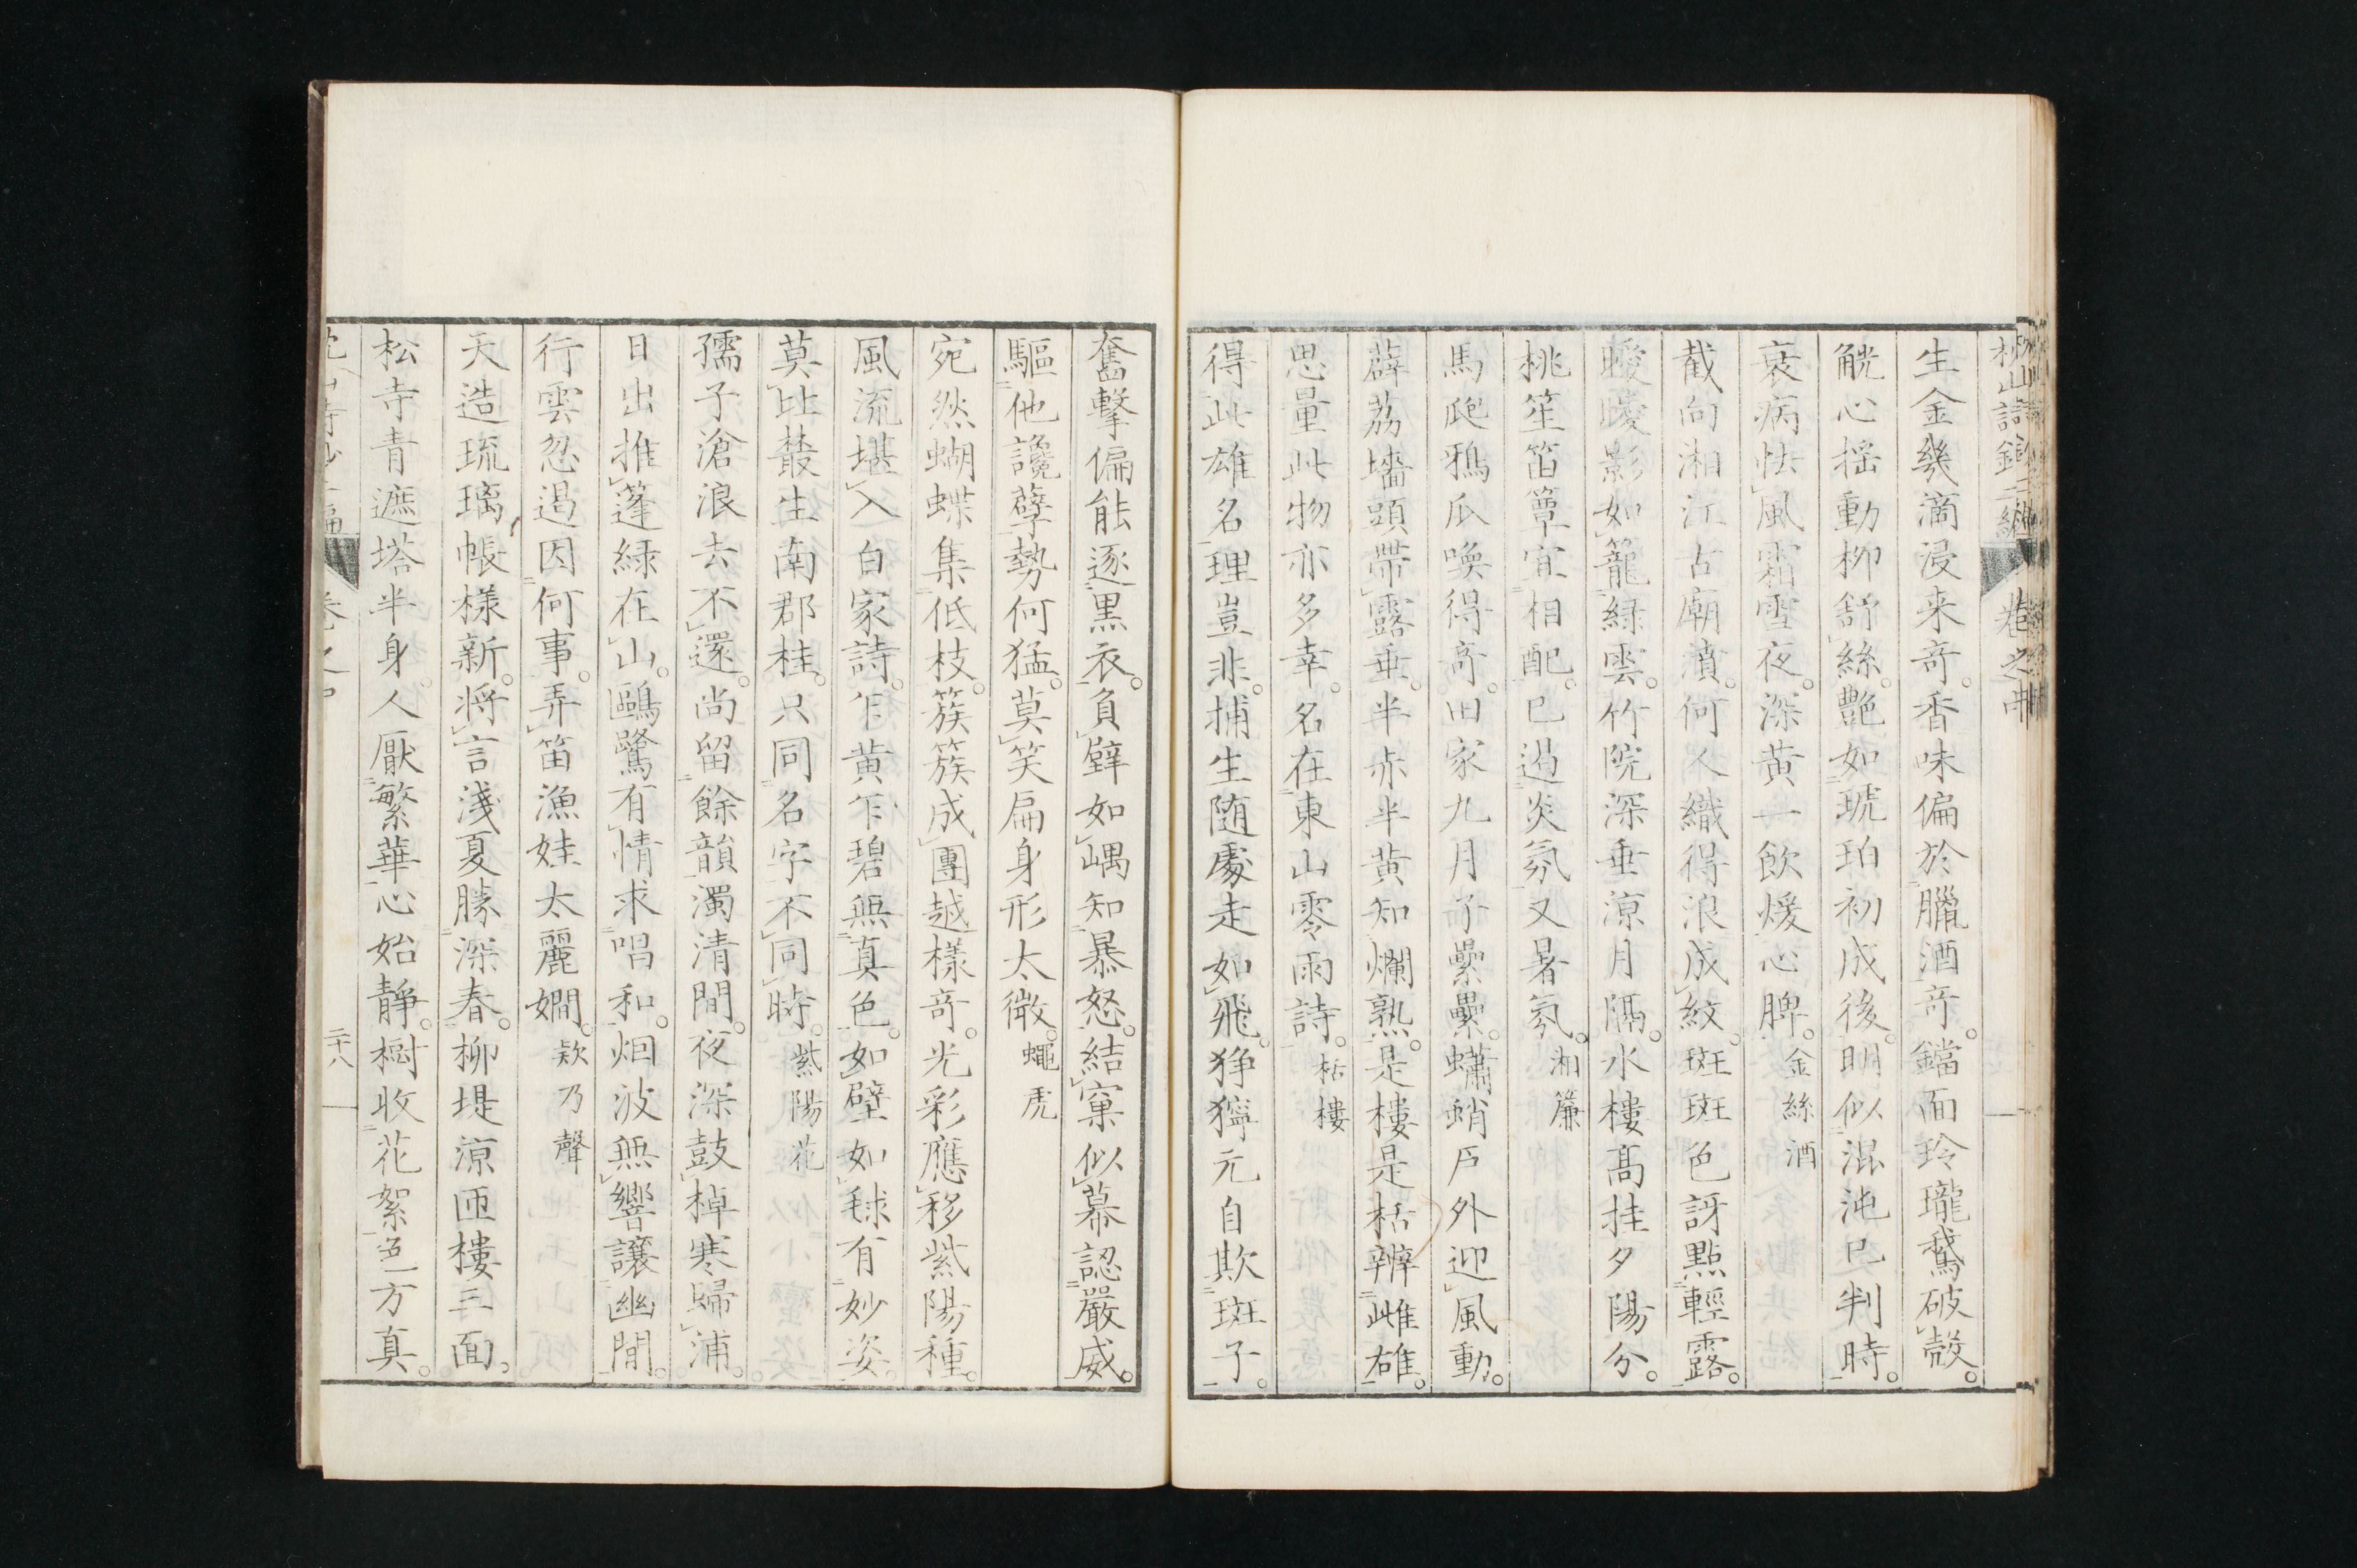 枕山詩鈔二編 卷之中
生金幾滴浸来奇。香味偏於臘酒奇。鐺面玲瓏鵞破殼。
觥心揺動柳舒絲。艷如琥珀初成後。明似混沌已判時。
衰病怯風霜雪夜。深黄一飲煖心脾。金絲酒
截向湘江古廟濆。何人織得浪成紋。斑斑色訝點輕露。
曖曖影如籠緑雲。竹院深垂凉月隔。水樓髙挂夕陽分。
桃笙笛簟宜相配。已過炎氛又暑氛。湘簾
馬爬鴉瓜喚得奇。田家九月子纍纍。蠨蛸戸外迎風動。
薜荔墻頭帶露垂。半赤半黄知爛熟。是樓是栝辨雌雄。
思量此物亦多幸。名在東山零雨詩。栝樓
得此雄名理豈非。捕生随處走如飛。狰獰元自欺斑子。
奮擊偏能逐黒衣。負壁如嵎知暴怒。結窠似幕認嚴威。
驅他讒孽勢何猛。莫笑扁身形太微。蠅虎
宛然蝴蝶集低枝。簇簇成團越様奇。光彩應移紫陽種。
風流堪入白家詩。乍黄乍碧無真色。如壁如毬有妙姿。
莫比叢生南郡桂。只同名字不同時。紫陽花
孺子滄浪去不還。尚留餘韻濁清間。夜深鼓棹寒歸浦。
日出推蓬緑在山。鷗鷺有情求唱和。烟波無響譲幽閒。
行雲忽遏因何事。弄笛漁娃太麗嫺。欵乃聲
天造琉璃帳様新。将言淺夏勝深春。柳堤凉匝樓三面。
松寺青遮塔半身。人厭繁華心始静。樹收花絮色方真。
二十八